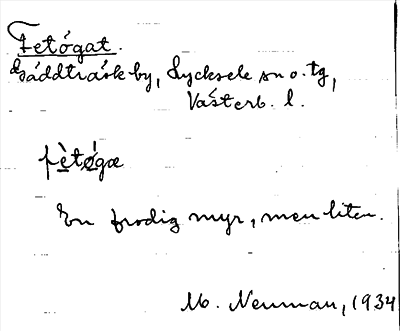 Fetögat.
Såddträsk by, Lycksele sn o. tg,
Västerb. l.
fètø̀gæ
En frodig myr, men liten.
M. Neuman, 1934